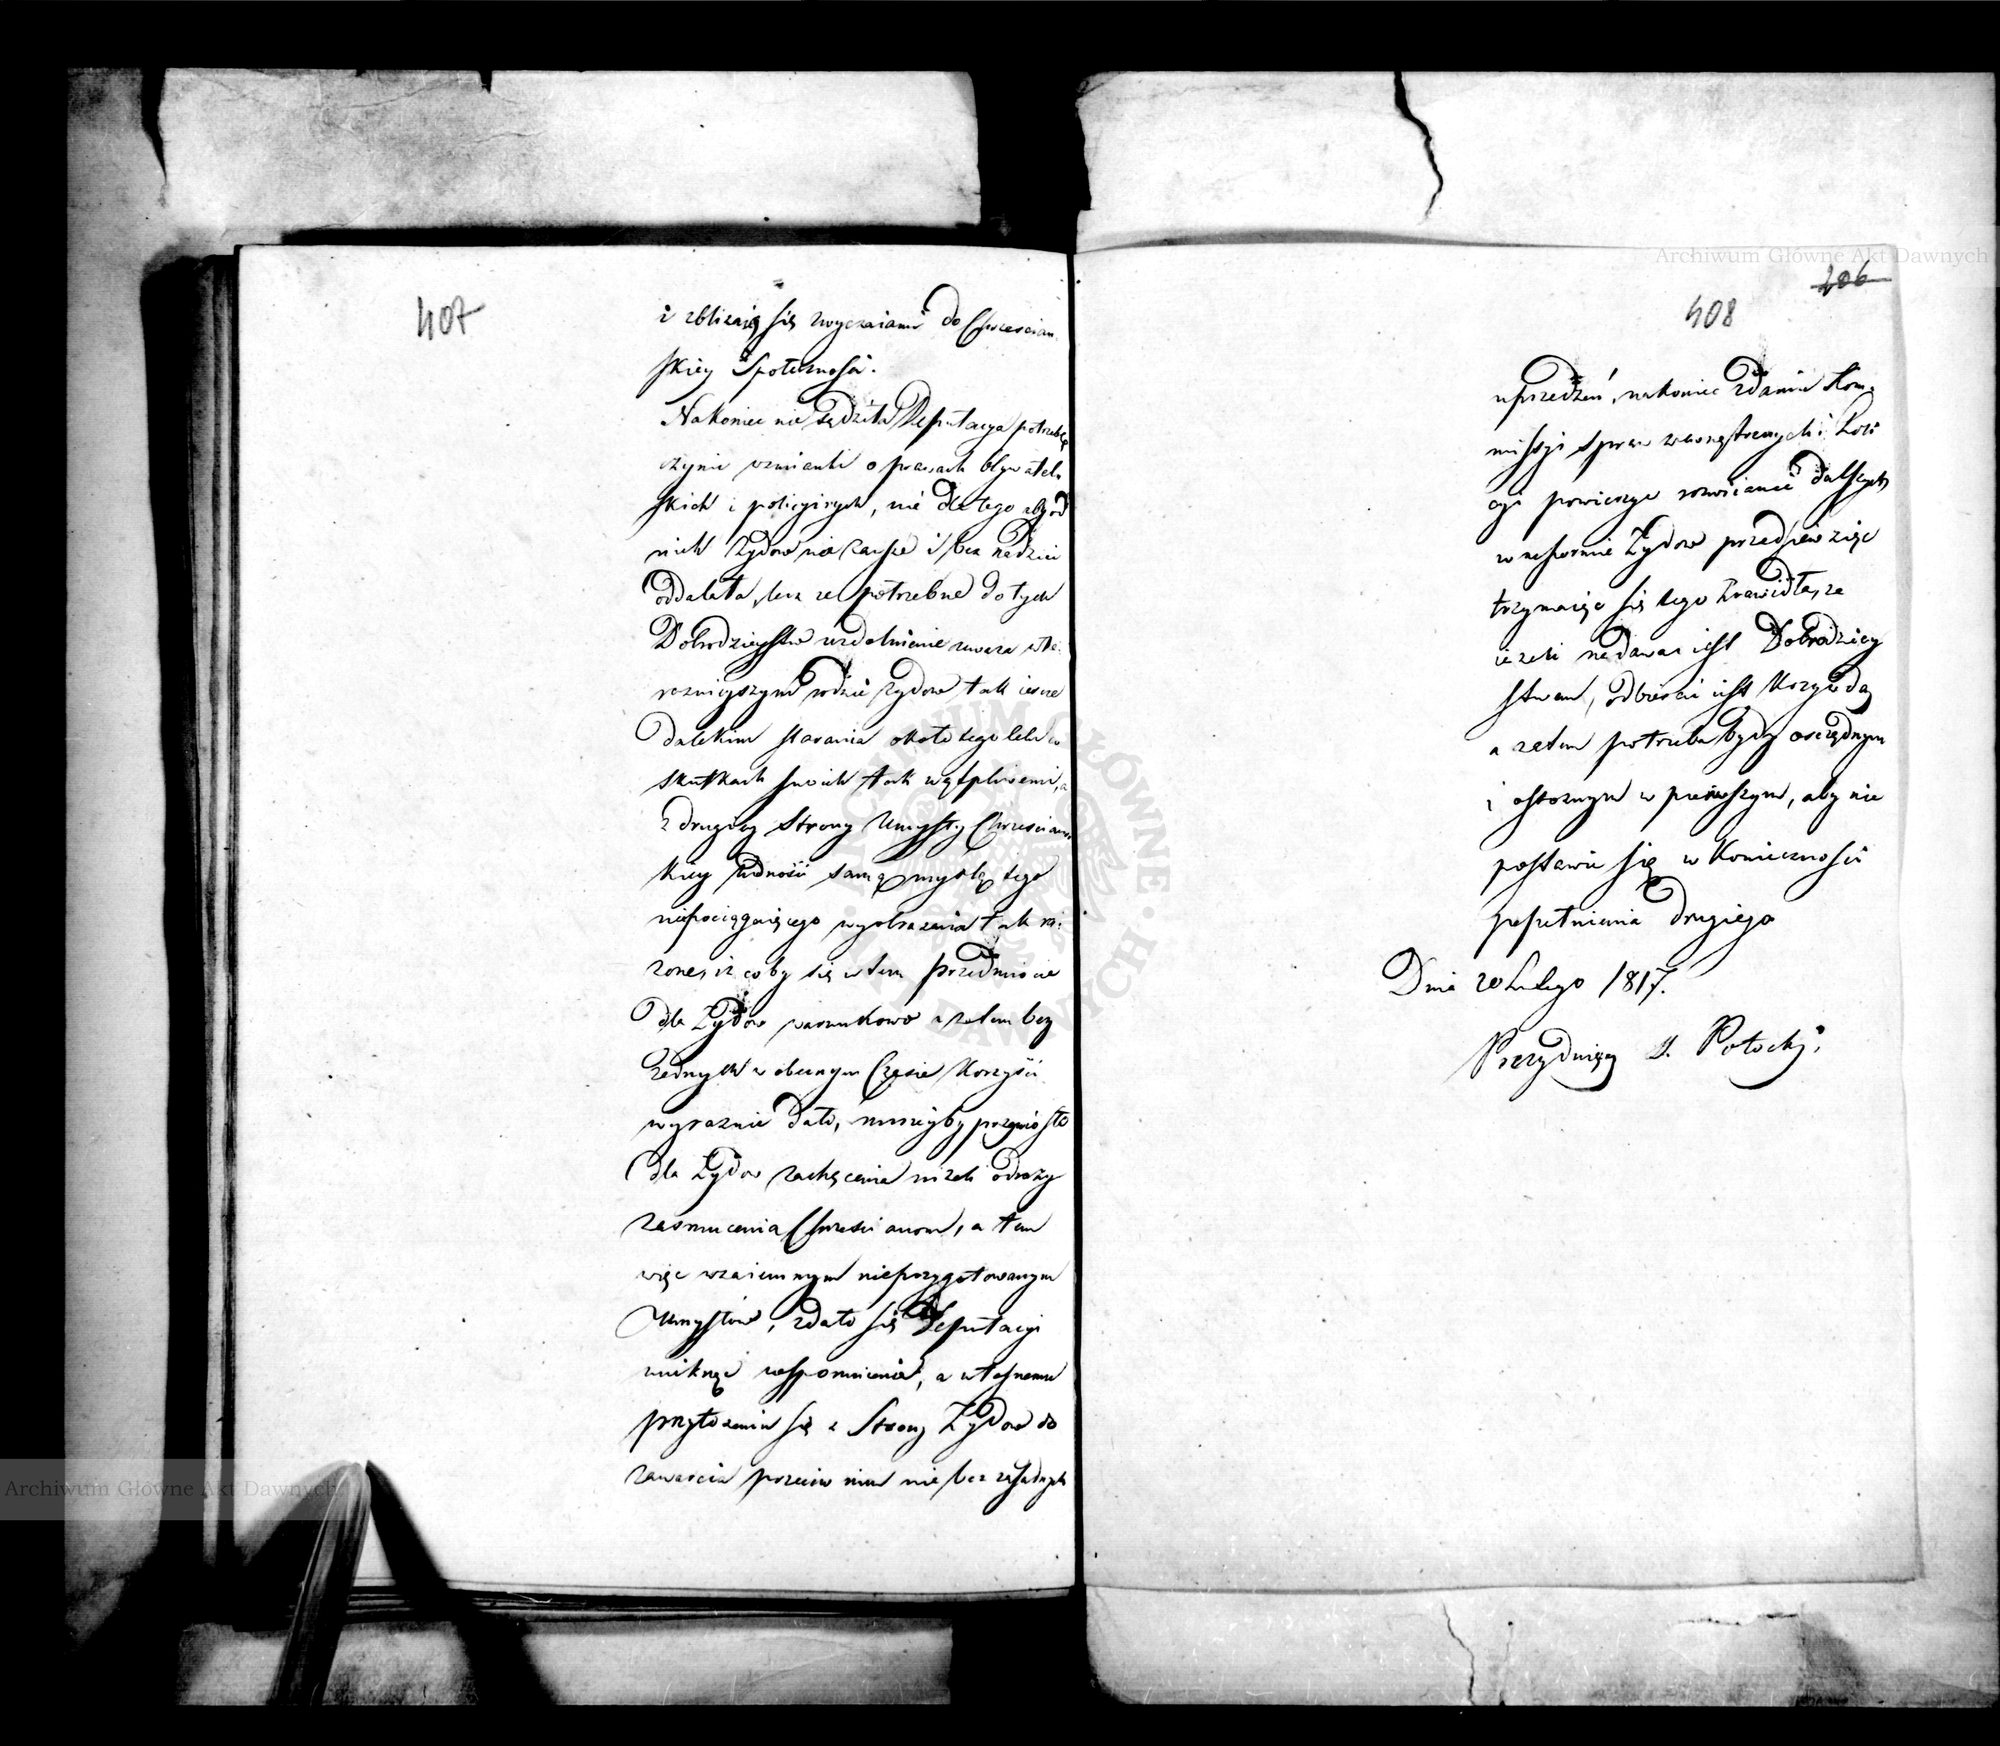 407
i zbliżaią się zwyczaiami do Chrzescian
skiey Społecznosci.
Nakoniec nie sądziła Deputacya potrzebą
czynic wzmianki o prawach obywatel
skich i policyinych, nie dla tego aby od
nich Zydow na zawsze i bez nadziei
oddalała, lecz ze potrzebne do tych
Dobrodzieystw uzdolnienie uwaza w te:
raznieyszym rodzie Zydow tak ieszcze
dalekim starania około tego celu w
skutkach swoich tak wątpliwemi, a
z drugiey Strony Umysły Chrzescians
kiey ludnosci samą myslą tego
niepociągaiącego wyobrazenia tak ra:
zone, iz coby się w tem przedmiocie
dla Zydow warunkowo a zatem bez
zadnych w obecnym Czasie Korzysci
wyraznie dało, mnieyby przyniosło
dla Zydow zachęcenia nizeli odrazy
zasmucenia Chrzescianom, a tem
więc wzaiemnym nieprzygotowanym
Umysłow, zdało się Deputacyi
uniknąć wspomnienia, a własnemu
przyłozeniu się z Strony Zydow do
zawarcia przeciw nim nie bezzasadnych
Archiwum Główne Akt Dawnych
Archiwum Główne Akt Dawnych
206
408
uprzedzeń, nakoniec zdaniu Kom:
missyi Spraw wewnętrznych i Poli
cyi powierzyc rozwianie dalszych
w reformie Zydow przedsiewzięc
trzymaiąc się tego Prawidła, ze
iezeli nadawac iest Dobrodziey
stwem, odbierac iest Krzywdą
a zatem potrzeba bydz oszczędnym
i ostoznym w pierwszym, aby nie
postawic się w Konieczności
popełnienia drugiego
Dnia 20 Lutego 1817.
Prezyduiący S. Potocki.